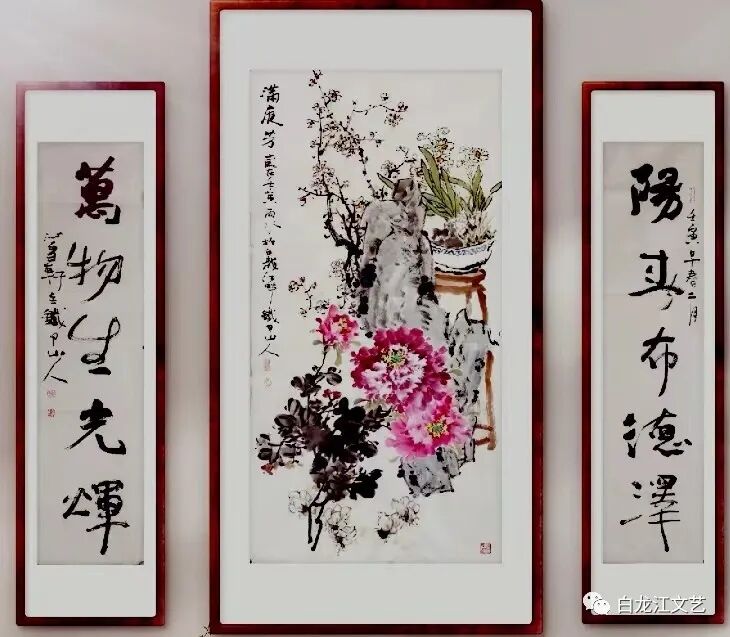 陽春布德澤
壬寅早春二月
滿庭芳
鐵甲山人
萬物生光輝
鐵甲山人
白龙江文艺